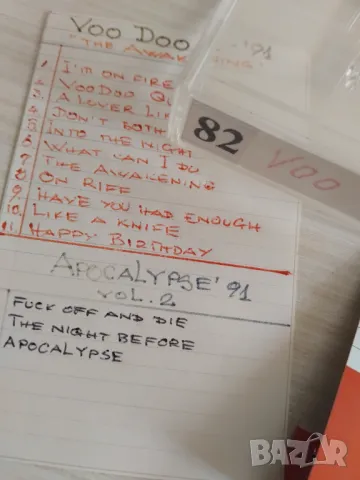 VOO DOO '91
"THE AWAKENING"
1. I'M ON FIRE
2. VOODOO QU
3. A LOVER LIK
4. DON'T BOTH
5. INTO THE NIGHT
6. WHAT CAN I DO
7. THE AWAKENING
8. ON RIFF
9. HAVE YOU HAD ENOUGH
10. LIKE A KNIFE
11. HAPPY BIRTHDAY
APOCALYPSE '91
VOL. 2
FUCK OFF AND DIE
THE NIGHT BEFORE
APOCALYPSE
82 VOO
BAZAR